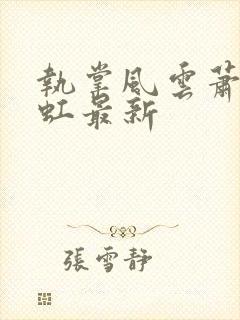 執掌風雲蕭
虹最新
張雪靜